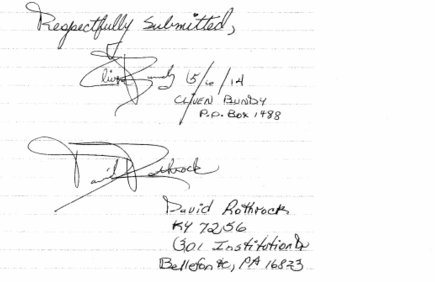 Respectfully Submitted,
Cliven Bundy 5/6/14
CLIVEN BUNDY
P.O. Box 1488
David Rothrock
David Rothrock
KY 7256
301 Institution Dr
Bellefonte, PA 16823